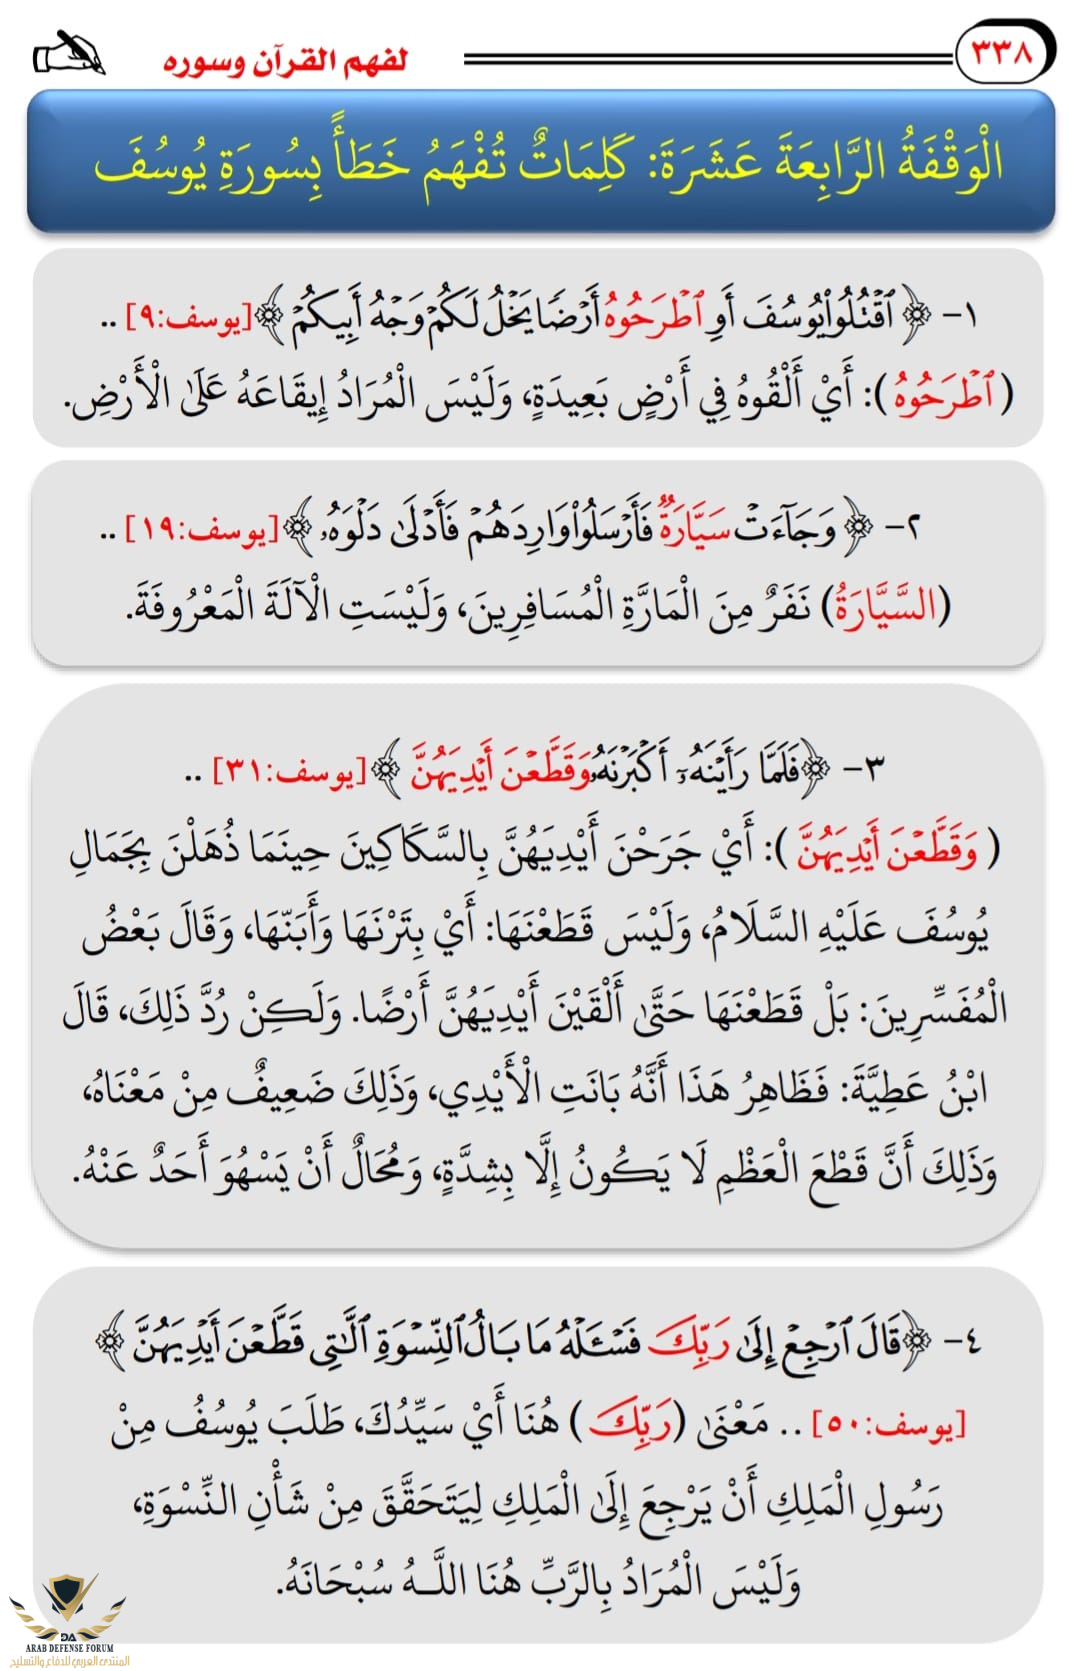 ٣٣٨
لفهم القرآن وسوره
الْوَقْفَةُ الرَّابِعَةَ عَشَرَةَ: كَلِمَاتٌ تُفْهَمُ خَطَأً بِسُورَةِ يُوسُفَ
١- ﴿ ٱقۡتُلُواْ يُوسُفَ أَوِ ٱطۡرَحُوهُ أَرۡضٗا يَخۡلُ لَكُمۡ وَجۡهُ أَبِيكُمۡ ﴾ [يوسف:٩] ..
( ٱطۡرَحُوهُ ): أَيْ أَلْقُوهُ فِي أَرْضٍ بَعِيدَةٍ، وَلَيْسَ الْمُرَادُ إِيقَاعَهُ عَلَى الْأَرْضِ.
٢- ﴿ وَجَآءَتۡ سَيَّارَةٞ فَأَرۡسَلُواْ وَارِدَهُمۡ فَأَدۡلَىٰ دَلۡوَهُۥ ﴾ [يوسف:١٩] ..
(السَّيَّارَةُ) نَفَرٌ مِنَ الْمَارَّةِ الْمُسَافِرِينَ، وَلَيْسَتِ الْآلَةَ الْمَعْرُوفَةَ.
٣- ﴿ فَلَمَّا رَأَيۡنَهُۥٓ أَكۡبَرۡنَهُۥ وَقَطَّعۡنَ أَيۡدِيَهُنَّ ﴾ [يوسف:٣١] ..
( وَقَطَّعۡنَ أَيۡدِيَهُنَّ ): أَيْ جَرَحْنَ أَيْدِيَهُنَّ بِالسَّكَاكِينَ حِينَمَا ذُهَلْنَ بِجَمَالِ
يُوسُفَ عَلَيْهِ السَّلَامُ، وَلَيْسَ قَطَعْنَهَا: أَيْ بِتَرْنَهَا وَأَبَنّهَا، وَقَالَ بَعْضُ
الْمُفَسِّرِينَ: بَلْ قَطَعْنَهَا حَتَّى أَلْقَيْنَ أَيْدِيَهُنَّ أَرْضًا. وَلَكِنْ رُدَّ ذَلِكَ، قَالَ
ابْنُ عَطِيَّةَ: فَظَاهِرُ هَذَا أَنَّهُ بَانَتِ الْأَيْدِي، وَذَلِكَ ضَعِيفٌ مِنْ مَعْنَاهُ،
وَذَلِكَ أَنَّ قَطْعَ الْعَظْمِ لَا يَكُونُ إِلَّا بِشِدَّةٍ، وَمُحَالٌ أَنْ يَسْهُوَ أَحَدٌ عَنْهُ.
٤- ﴿ قَالَ ٱرۡجِعۡ إِلَىٰ رَبِّكَ فَسۡـَٔلۡهُ مَا بَالُ ٱلنِّسۡوَةِ ٱلَّٰتِي قَطَّعۡنَ أَيۡدِيَهُنَّ ﴾
[يوسف:٥٠] .. مَعْنَى (رَبِّكَ ) هُنَا أَيْ سَيِّدُكَ، طَلَبَ يُوسُفُ مِنْ
رَسُولِ الْمَلِكِ أَنْ يَرْجِعَ إِلَى الْمَلِكِ لِيَتَحَقَّقَ مِنْ شَأْنِ النِّسْوَةِ،
وَلَيْسَ الْمُرَادُ بِالرَّبِّ هُنَا اللَّـهُ سُبْحَانَهُ.
DA
ARAB DEFENSE FORUM
المنتدى العربي للدفاع والتسليح